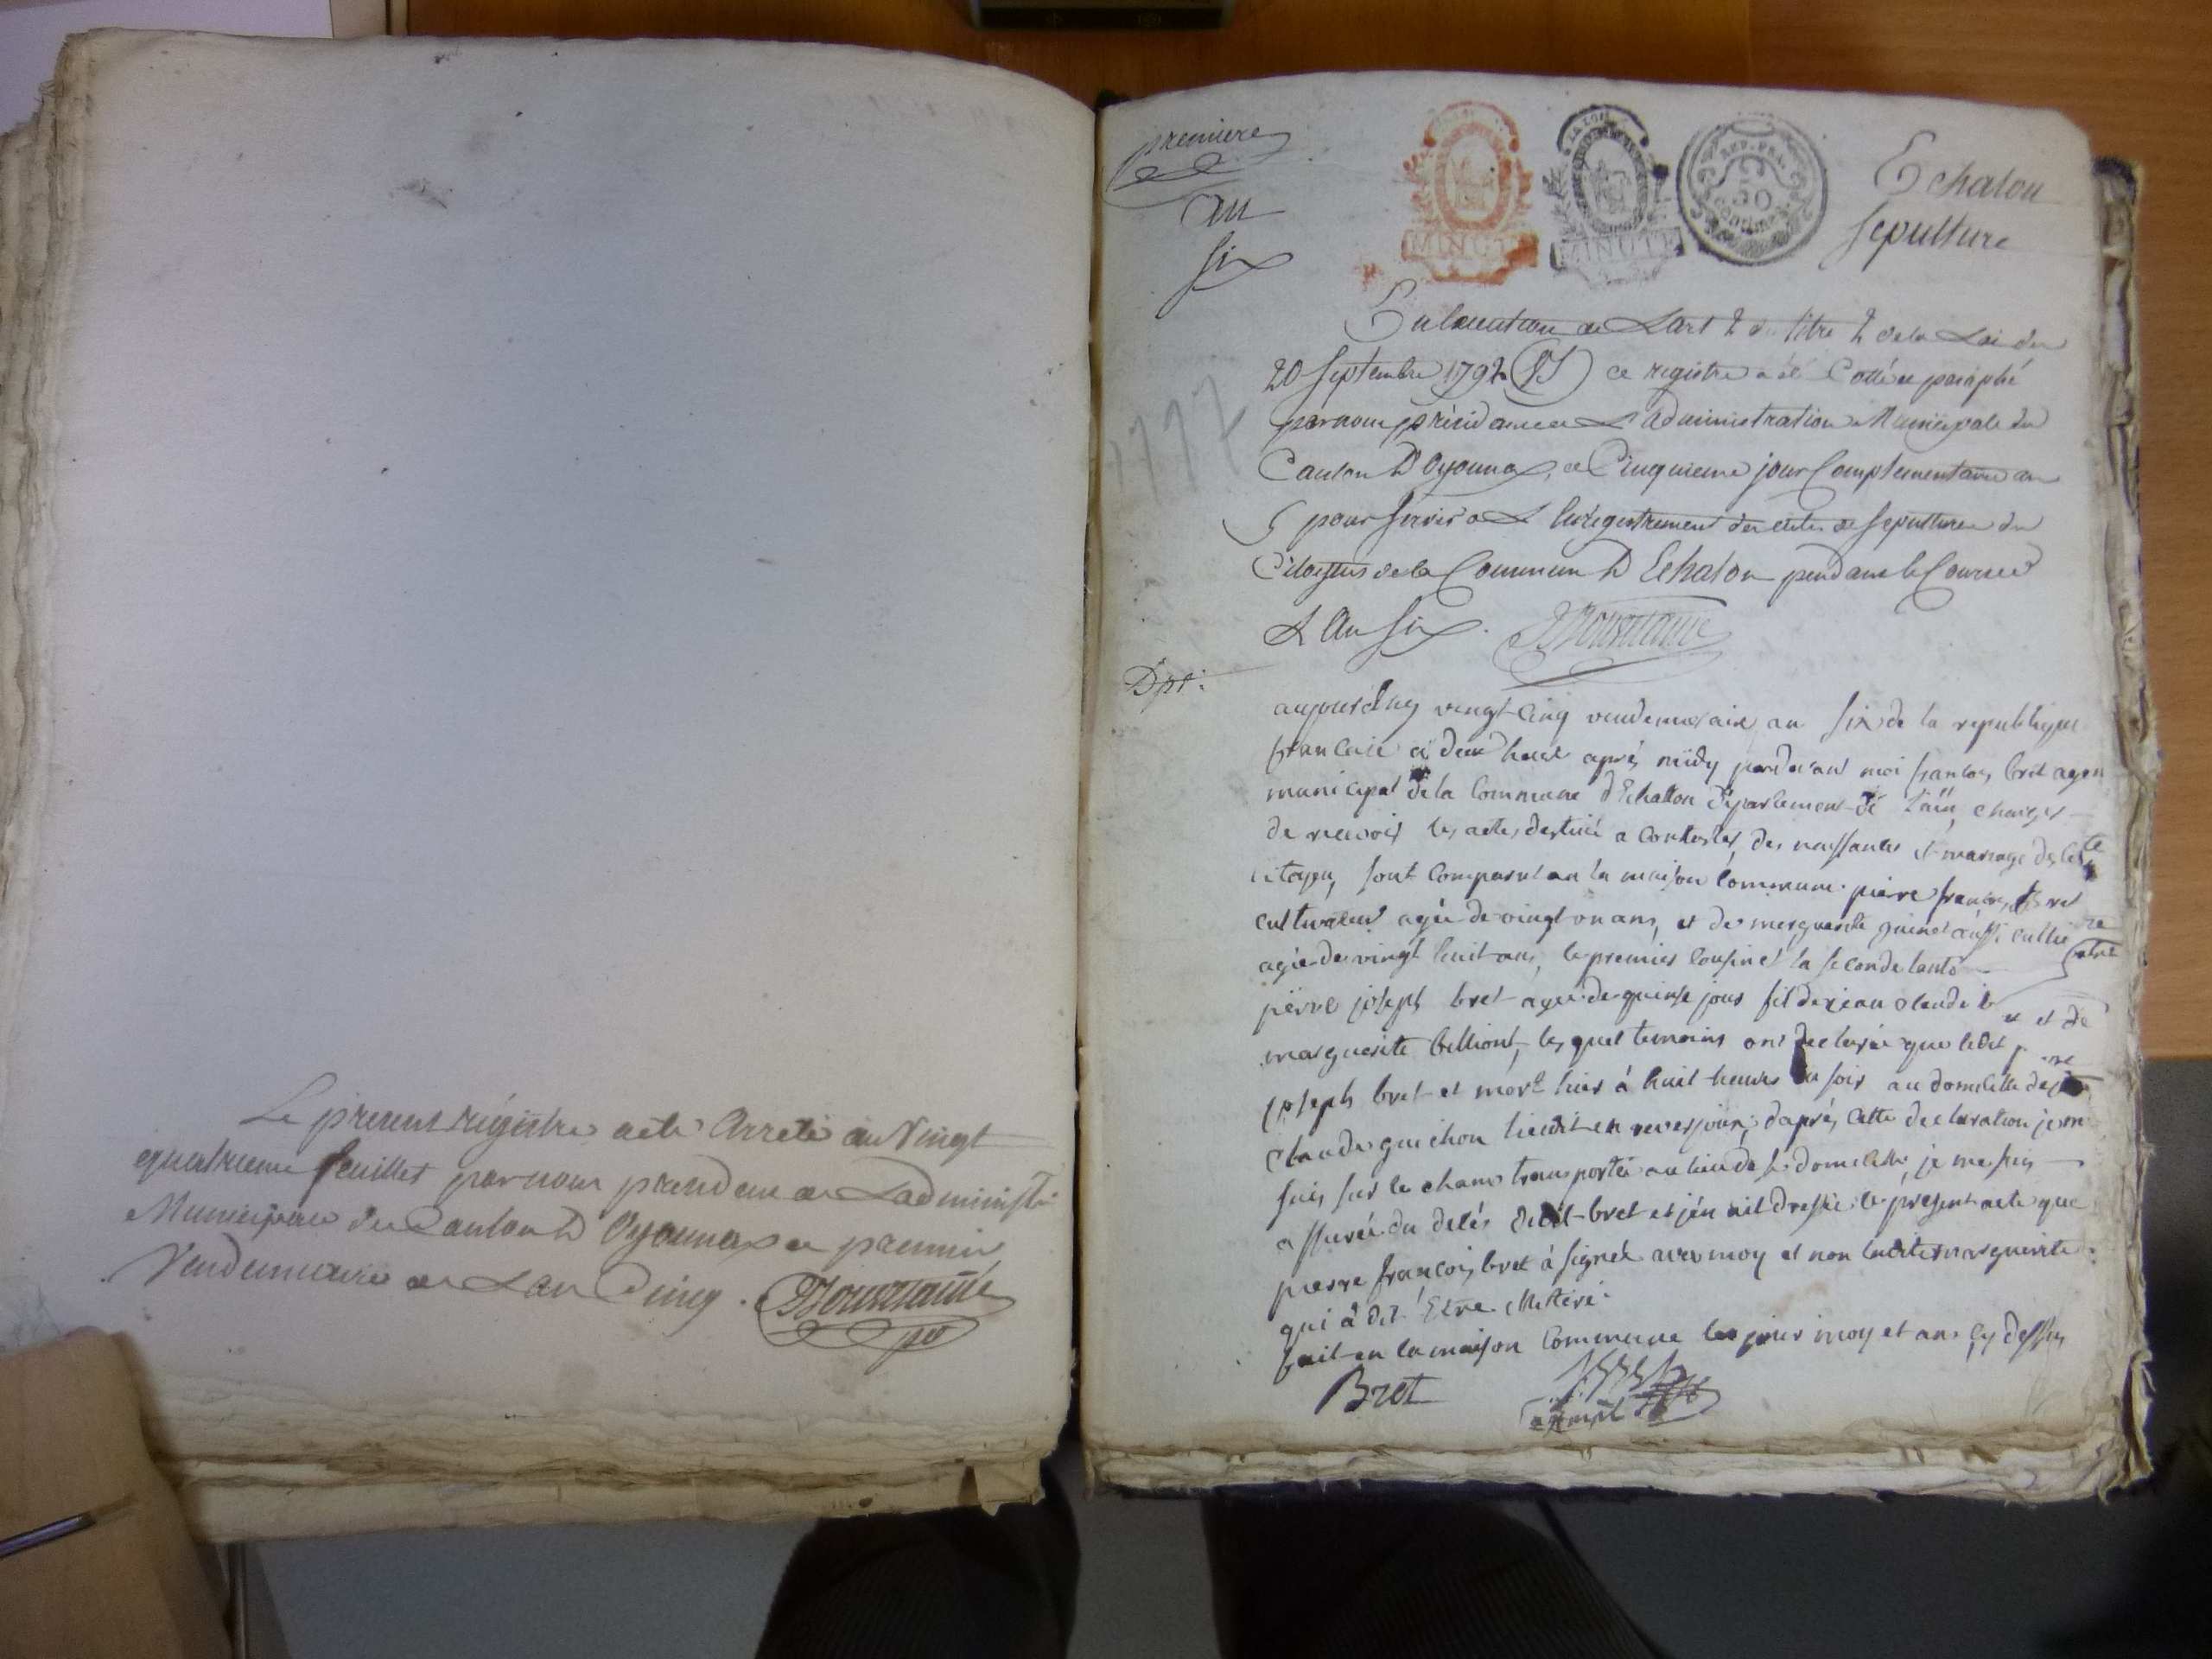 Le present régistre a été Arreté au Vingt
quatrieme feuillet par nous president de L'administ.
Municipale du Canton D'Oyonnax ce premier
Vendemiaire de L'an Cinq.
premiere
an
six
MINUTE
LA LOI
MINUTE
REP. FRA.
50
centimes
Echalon
sepulture
En Execution de L'art 2 du titre 2 de la Loi du
20 Septembre 1792 (VS) ce registre a été Cotté et paraphé
par nous président de L'administration Municipale du
Canton D'Oyonnax, ce Cinquieme jour Complementaire an
5 pour servir a L'enregistrement des actes de sepultures des
Citoyens de la Commune D'Echalon pendant le Courant
de L'an six.
1797
aujourdhuy vingt-cinq vendemiaire an six de la republique
francaise à deux heures aprés midy pardevant moi francois bret agen
municipal de la Commune d'Echallon département de l'ain, charger
de recevoir les actes destiné a constater des naissances et mariage des
citoyen, sont comparut en la maison commune pierre francois bret
cultivateur agée de vingt un ans, et de marguerite guinet aussi
agée de vingt huit ans, le premier cousin et la seconde tante
pierre joseph bret agée de quinse jours fil de jean claude b et et de
marguerite billiont, les quel temoins ont declarée que ledit
joseph bret et mort hier à huit heures du soir au domicille de
claude guichon lieudit en reverjour, daprés cette declaration je me
suis sur le champ transportée au lieu de se domicille, je me suis
assurée du délés dudit bret et jén ait dressée le présent acte que
pierre francois bret à signée avec moy et non ladite marguerite
qui à dit Etre illettéré.
fait en la maison commune les jour moy et an cy dessus
Bret